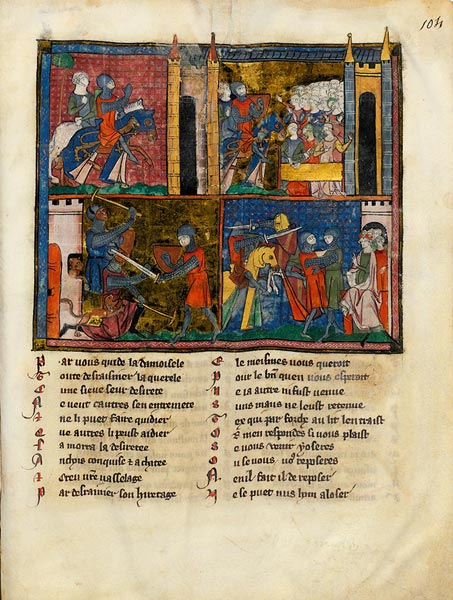 104
P ar vous quide la damoisele
T oute desraisnier la querele
une sieue seur desirete
e veut cautres sen entremete
ne li puet faire quidier
ue autres li puist aidier
amora la desiretee
A nchois conquise & achatee
creu vre vasselage
P ar desraisnier son hiretage
E le meismes vous queroit
P our le bn quen vous esperoit
e ia autre ni fust venue
uns maus ne leust retenue
T ex qui par forche au lit len traist
me respondes si vous plaist
S e vous venir y oseres
O u se vous vo9 reposeres
N enil fait il de reposer
N e se puet nus hom aloser